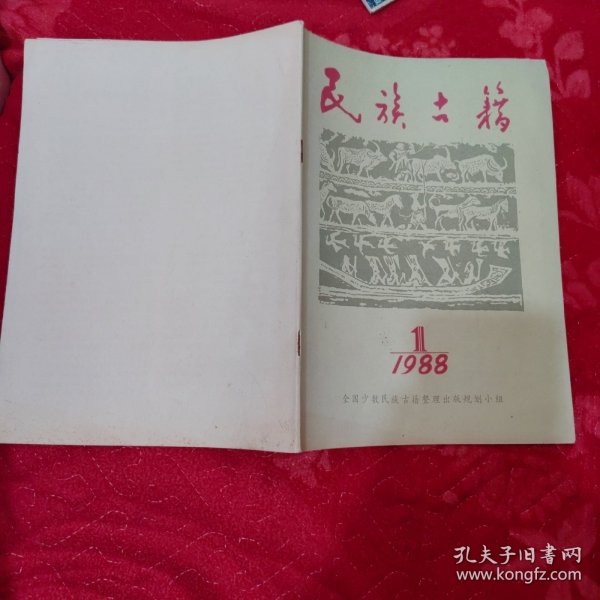 民族古籍
1
1988
全国少数民族古籍整理出版规划小组
孔夫子旧书网
www.kongfz.com